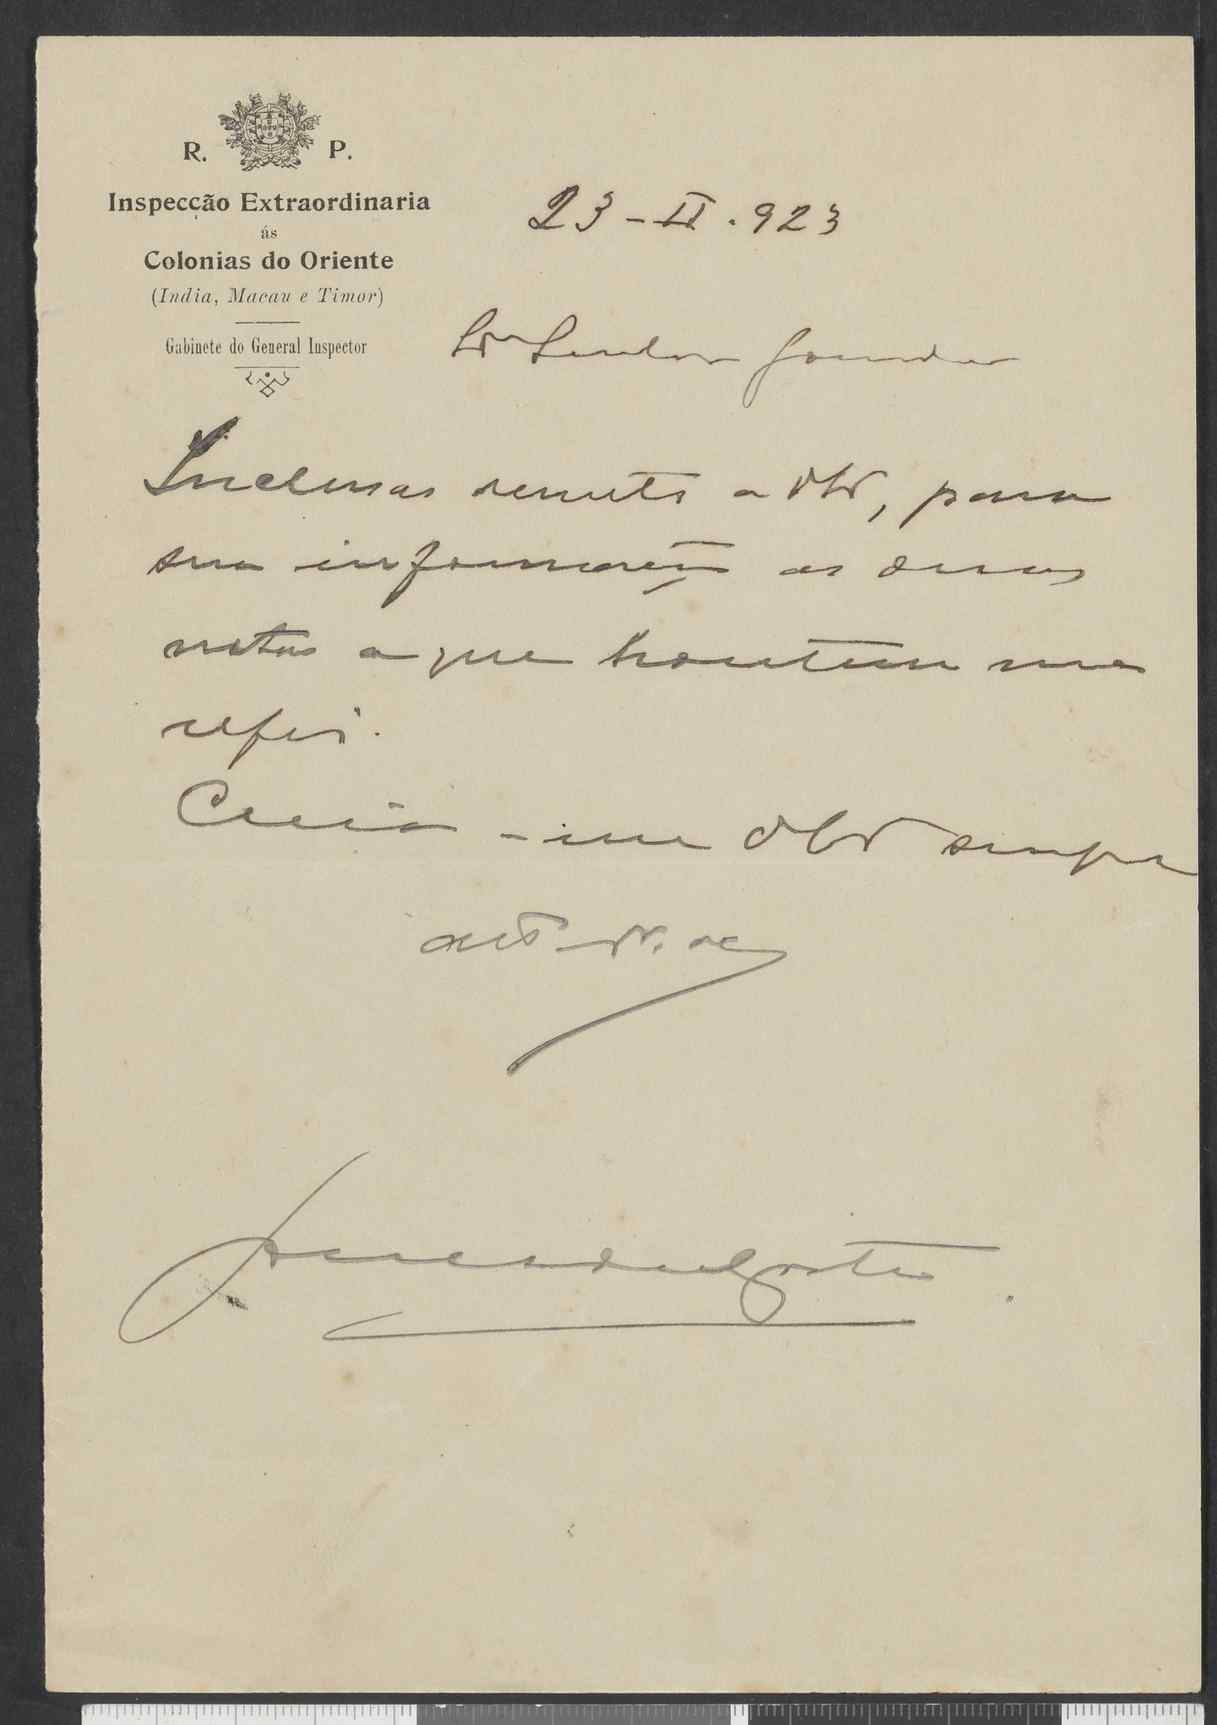 R. P.
Inspecção Extraordinaria
ás
Colonias do Oriente
(India, Macau e Timor)
Gabinete do General Inspector
23-II.923
Senhor
Inclusas remeto a VEx, para
sua informação as duas
notas a que hontem me
referi.
Creia-me VEx sempre